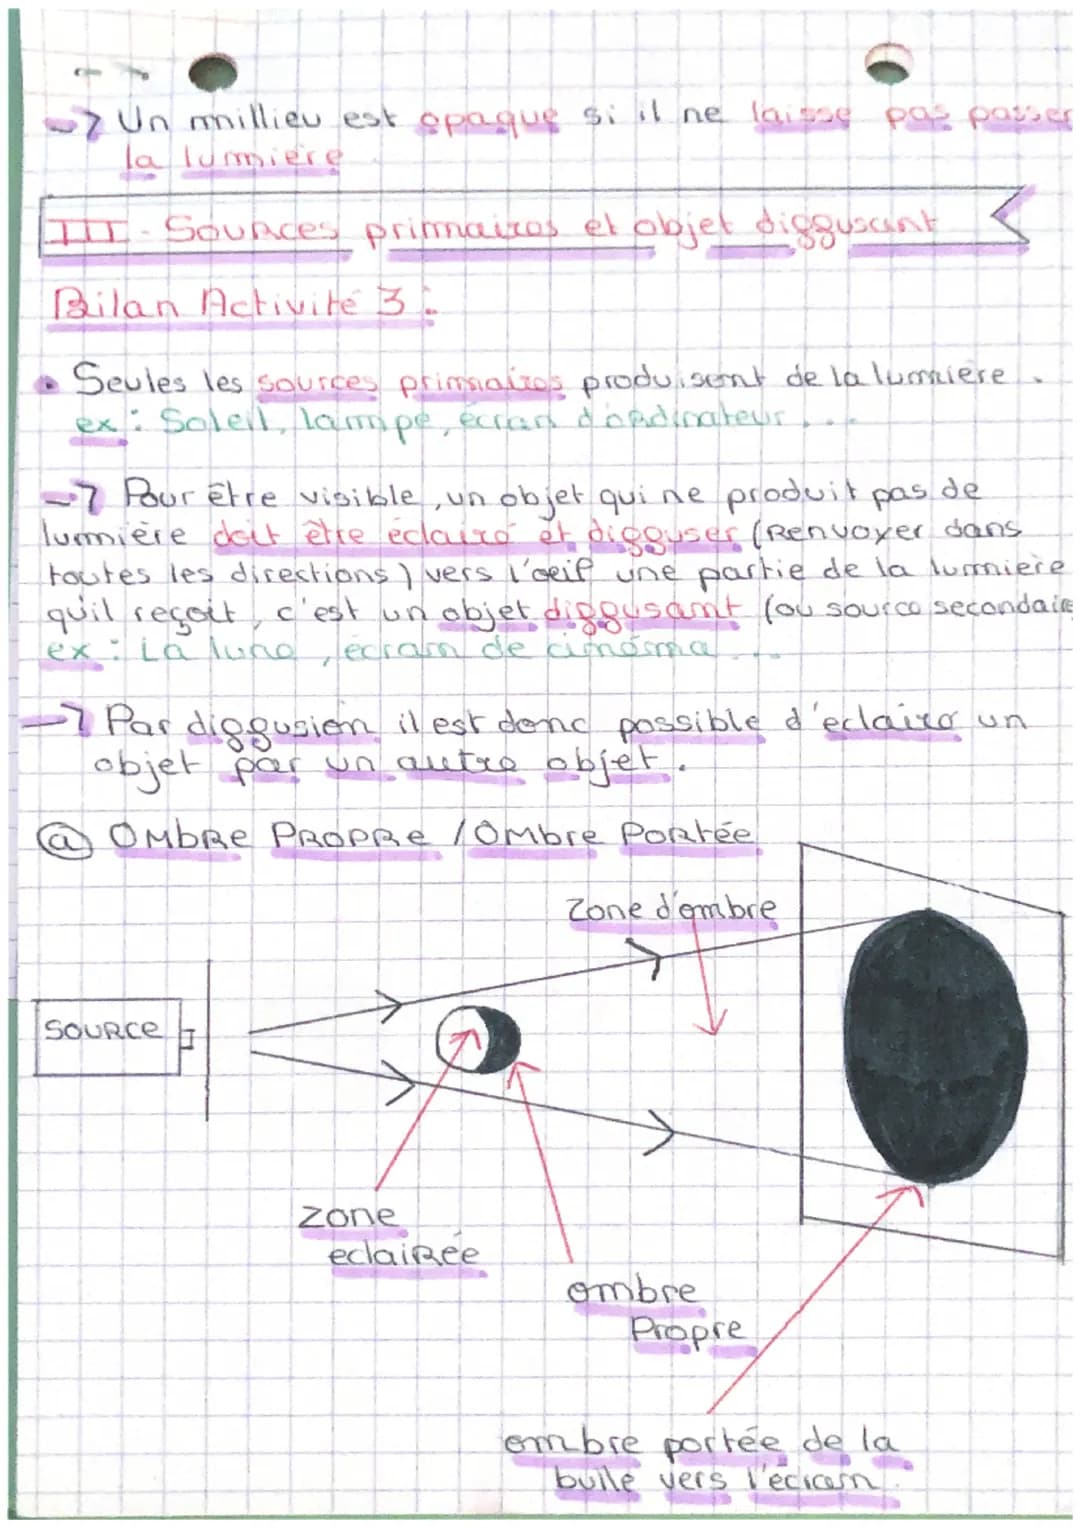 → Un millieu est opaque si il ne laisse pas passer
la lumière
III - Sources primaires et objet diffusant
Bilan Activité 3 :
• Seules les sources primaires produisent de la lumière.
ex : Soleil, lampe, écran d'ordinateur...
→ Pour être visible, un objet qui ne produit pas de
lumière doit être éclairé et diffuser (Renvoyer dans
toutes les directions) vers l'oeil une partie de la lumière
qu'il reçoit, c'est un objet diffusant (ou source secondaire
ex : La lune, écran de cinéma...
→ Par diffusion il est donc possible d'eclairer un
objet par un autre objet.
ⓐ OMBRE PROPRE / OMbre Portée
Zone d'ombre
SOURCE
zone
eclairée
ombre
Propre
ombre portée de la
bulle vers l'écran.